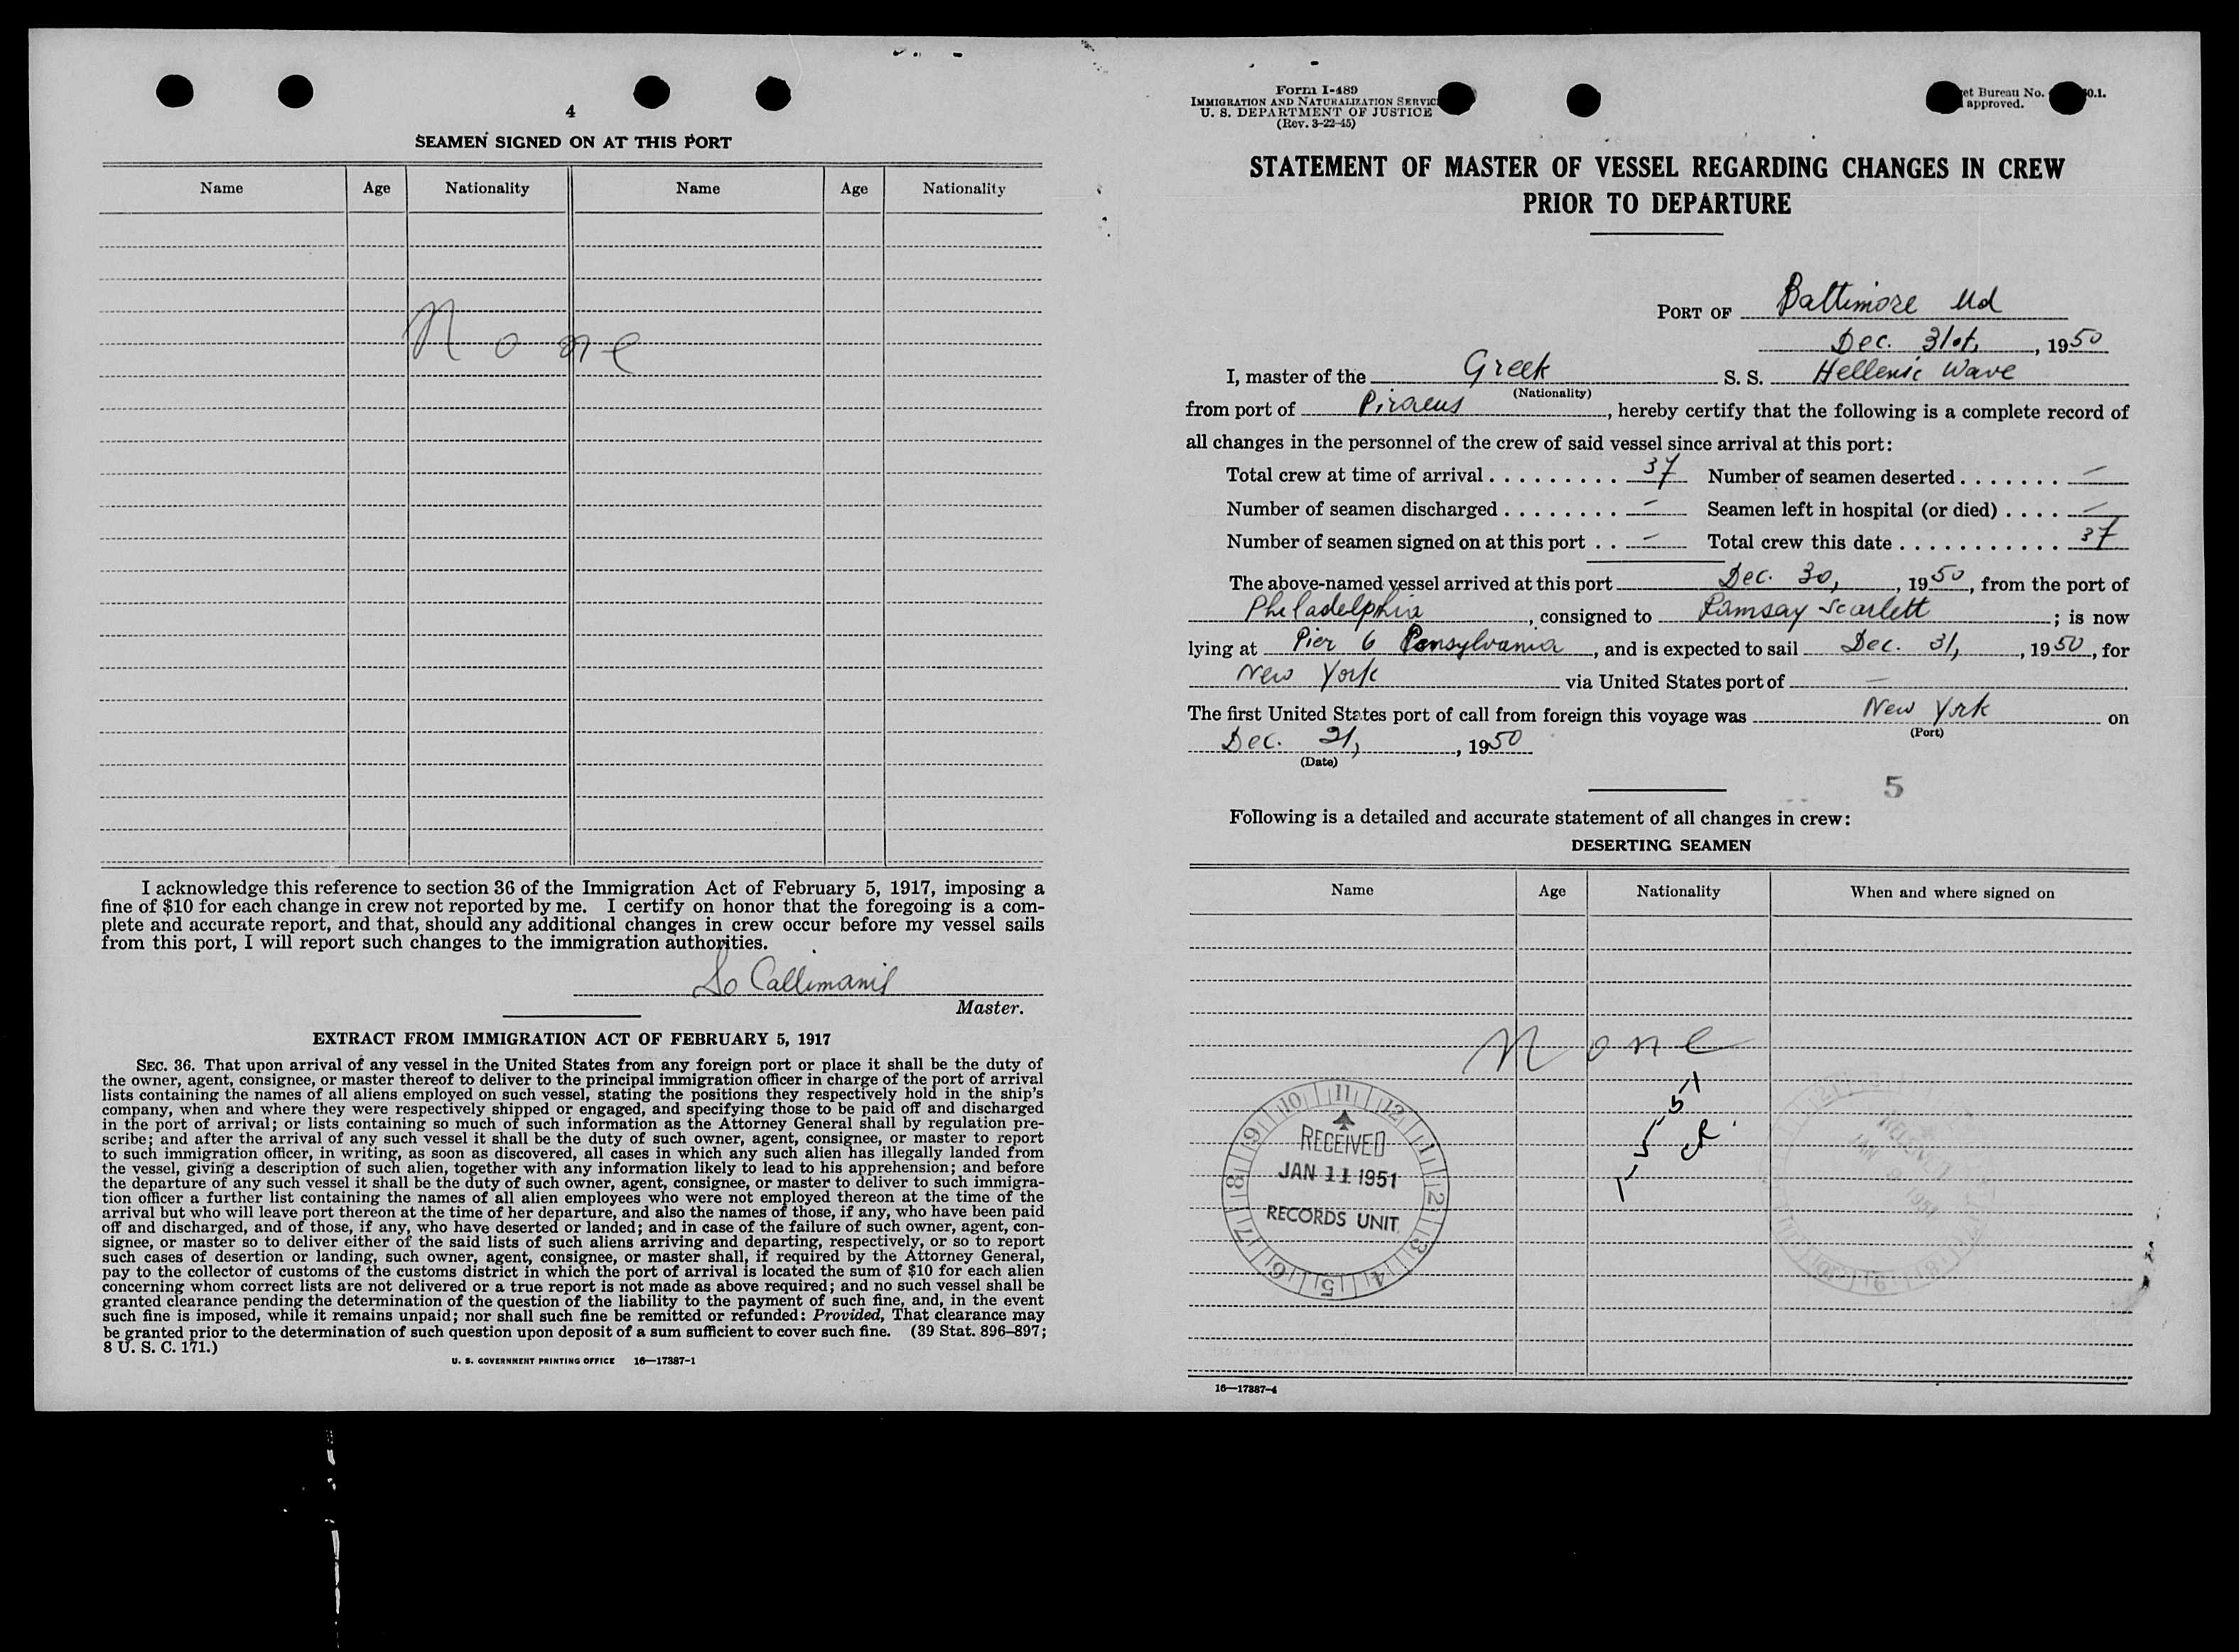 4
SEAMEN SIGNED ON AT THIS PORT
Name Age Nationality Name Age Nationality
None
I acknowledge this reference to section 36 of the Immigration Act of February 5, 1917, imposing a
fine of $10 for each change in crew not reported by me. I certify on honor that the foregoing is a com-
plete and accurate report, and that, should any additional changes in crew occur before my vessel sails
from this port, I will report such changes to the immigration authorities.
Callimanis
Master.
EXTRACT FROM IMMIGRATION ACT OF FEBRUARY 5, 1917
SEC. 36. That upon arrival of any vessel in the United States from any foreign port or place it shall be the duty of
the owner, agent, consignee, or master thereof to deliver to the principal immigration officer in charge of the port of arrival
lists containing the names of all aliens employed on such vessel, stating the positions they respectively hold in the ship's
company, when and where they were respectively shipped or engaged, and specifying those to be paid off and discharged
in the port of arrival; or lists containing so much of such information as the Attorney General shall by regulation pre-
scribe; and after the arrival of any such vessel it shall be the duty of such owner, agent, consignee, or master to report
to such immigration officer, in writing, as soon as discovered, all cases in which any such alien has illegally landed from
the vessel, giving a description of such alien, together with any information likely to lead to his apprehension; and before
the departure of any such vessel it shall be the duty of such owner, agent, consignee, or master to deliver to such immigra-
tion officer a further list containing the names of all alien employees who were not employed thereon at the time of the
arrival but who will leave port thereon at the time of her departure, and also the names of those, if any, who have been paid
off and discharged, and of those, if any, who have deserted or landed; and in case of the failure of such owner, agent, con-
signee, or master so to deliver either of the said lists of such aliens arriving and departing, respectively, or so to report
such cases of desertion or landing, such owner, agent, consignee, or master shall, if required by the Attorney General,
pay to the collector of customs of the customs district in which the port of arrival is located the sum of $10 for each alien
concerning whom correct lists are not delivered or a true report is not made as above required; and no such vessel shall be
granted clearance pending the determination of the question of the liability to the payment of such fine, and, in the event
such fine is imposed, while it remains unpaid; nor shall such fine be remitted or refunded: Provided, That clearance may
be granted prior to the determination of such question upon deposit of a sum sufficient to cover such fine. (39 Stat. 896–897;
8 U. S. C. 171.)
U. S. GOVERNMENT PRINTING OFFICE 16—17387-1
Form I-489
IMMIGRATION AND NATURALIZATION SERVIC
U. S. DEPARTMENT OF JUSTICE
(Rev. 3-22-45)
et Bureau No. 0.1.
approved.
STATEMENT OF MASTER OF VESSEL REGARDING CHANGES IN CREW
PRIOR TO DEPARTURE
PORT OF Baltimore Md
Dec. 31st, , 1950
I, master of the Greek S. S. Hellenic Wave
(Nationality)
from port of Piraeus , hereby certify that the following is a complete record of
all changes in the personnel of the crew of said vessel since arrival at this port:
Total crew at time of arrival . . . . . . . . . 37 Number of seamen deserted . . . . . . . —
Number of seamen discharged . . . . . . . . — Seamen left in hospital (or died) . . . . —
Number of seamen signed on at this port . . — Total crew this date . . . . . . . . . . . 37
The above-named vessel arrived at this port Dec. 30, , 1950, from the port of
Philadelphia , consigned to Ramsay Scarlett ; is now
lying at Pier 6 Pensylvania , and is expected to sail Dec. 31, , 1950, for
New York via United States port of —
The first United States port of call from foreign this voyage was New York on
(Port)
Dec. 21, , 1950
(Date)
5
Following is a detailed and accurate statement of all changes in crew:
DESERTING SEAMEN
Name Age Nationality When and where signed on
None
1-5-51
RECEIVED
JAN 11 1951
RECORDS UNIT
16—17387-4